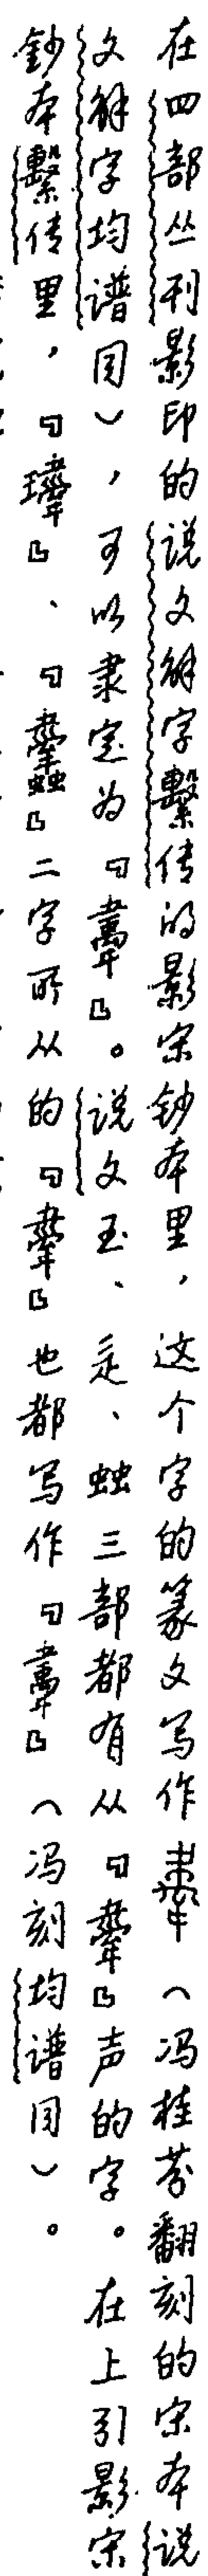 在四部丛刊影印的说文解字繫传的影宋钞本里，这个字的篆文写作（冯桂芬翻刻的宋本说
文解字均谱同），可以隶定为『』。说文玉、辵、䖵三部都有从『』声的字。在上引影宋
钞本繫传里，『』、『』二字所从的『』也都写作『』（冯刻均谱同）。